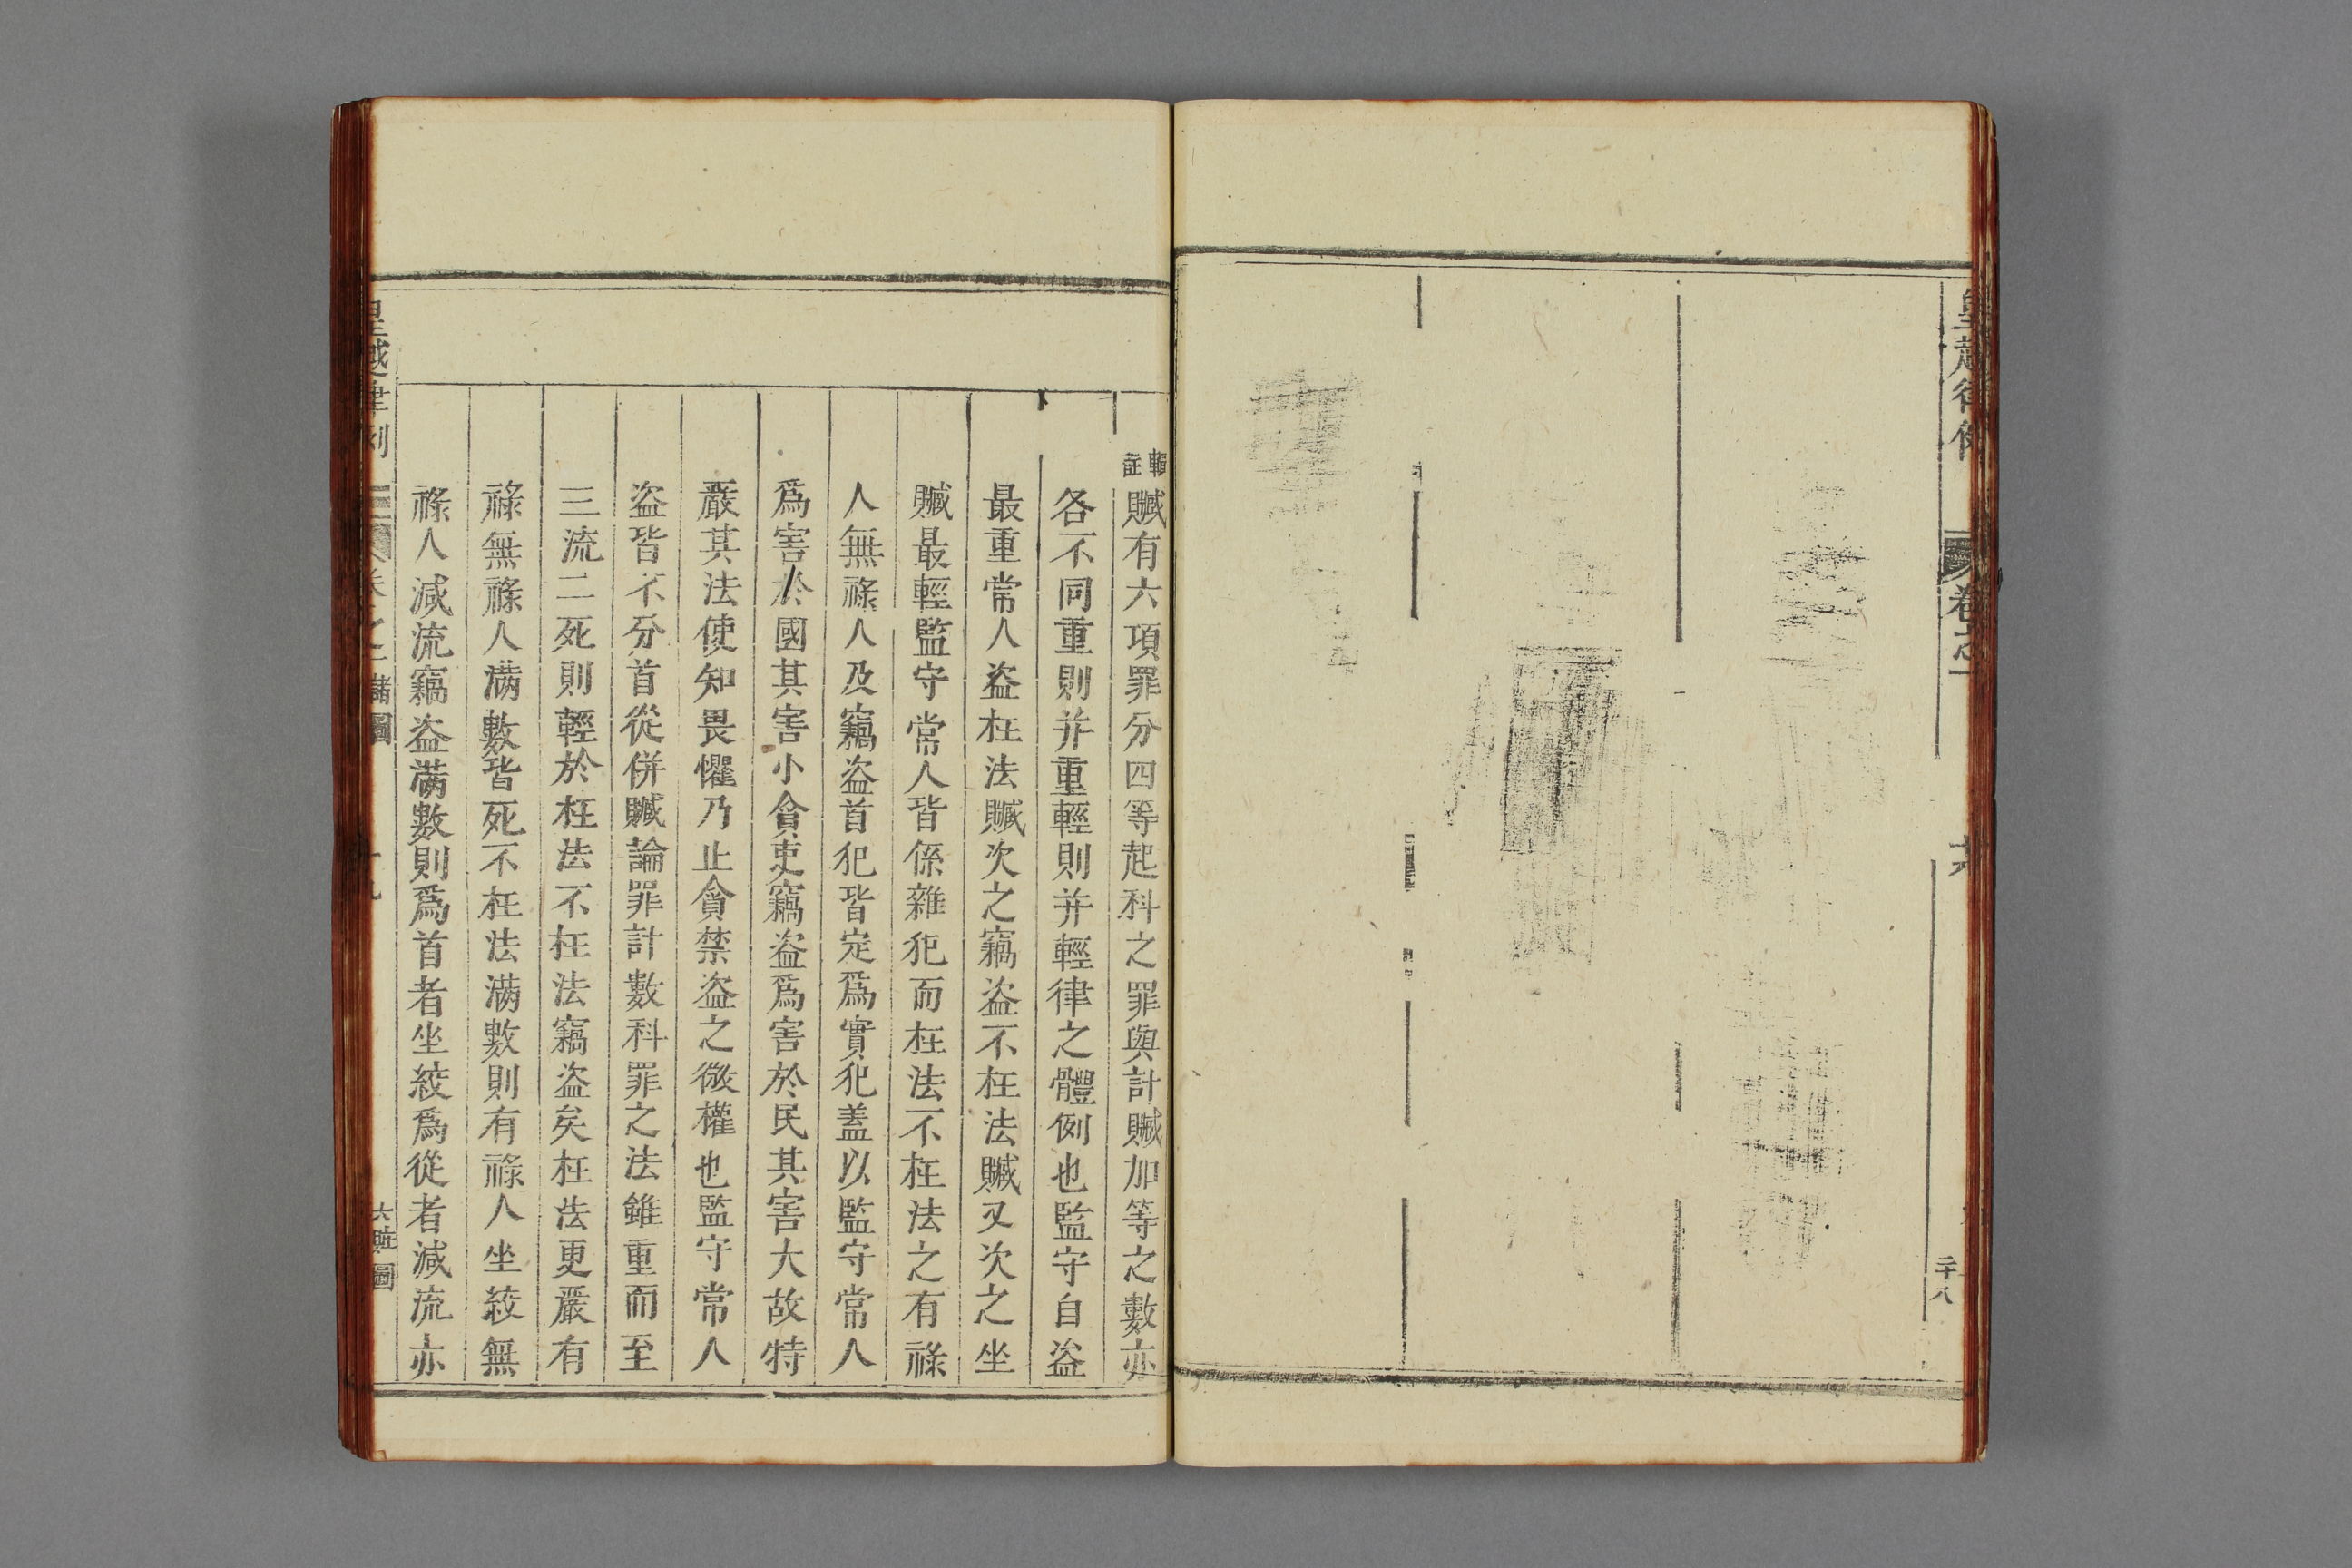 皇越律例
卷之一
二十八
輯註
贓有六項罪分四等起科之罪與計贓加等之數亦
各不同重則并重輕則并輕律之體例也監守自盜
最重常人盜枉法贓次之竊盜不枉法贓又次之坐
贓最輕監守常人皆係雜犯而枉法不枉法之有祿
人無祿人及竊盜首犯皆定爲實犯蓋以監守常人
爲害於國其害小貪吏竊盜爲害於民其害大故特
嚴其法使知畏懼乃止貪禁盜之微權也監守常人
盜皆不分首從併贓論罪計數科罪之法雖重而至
三流二死則輕於枉法不枉法竊盜矣枉法更嚴有
祿無祿人滿數皆死不枉法滿數則有祿人坐絞無
祿人減流竊盜滿數則爲首者坐絞爲從者減流亦
皇越律例
卷之一
諸圖
六贓圖